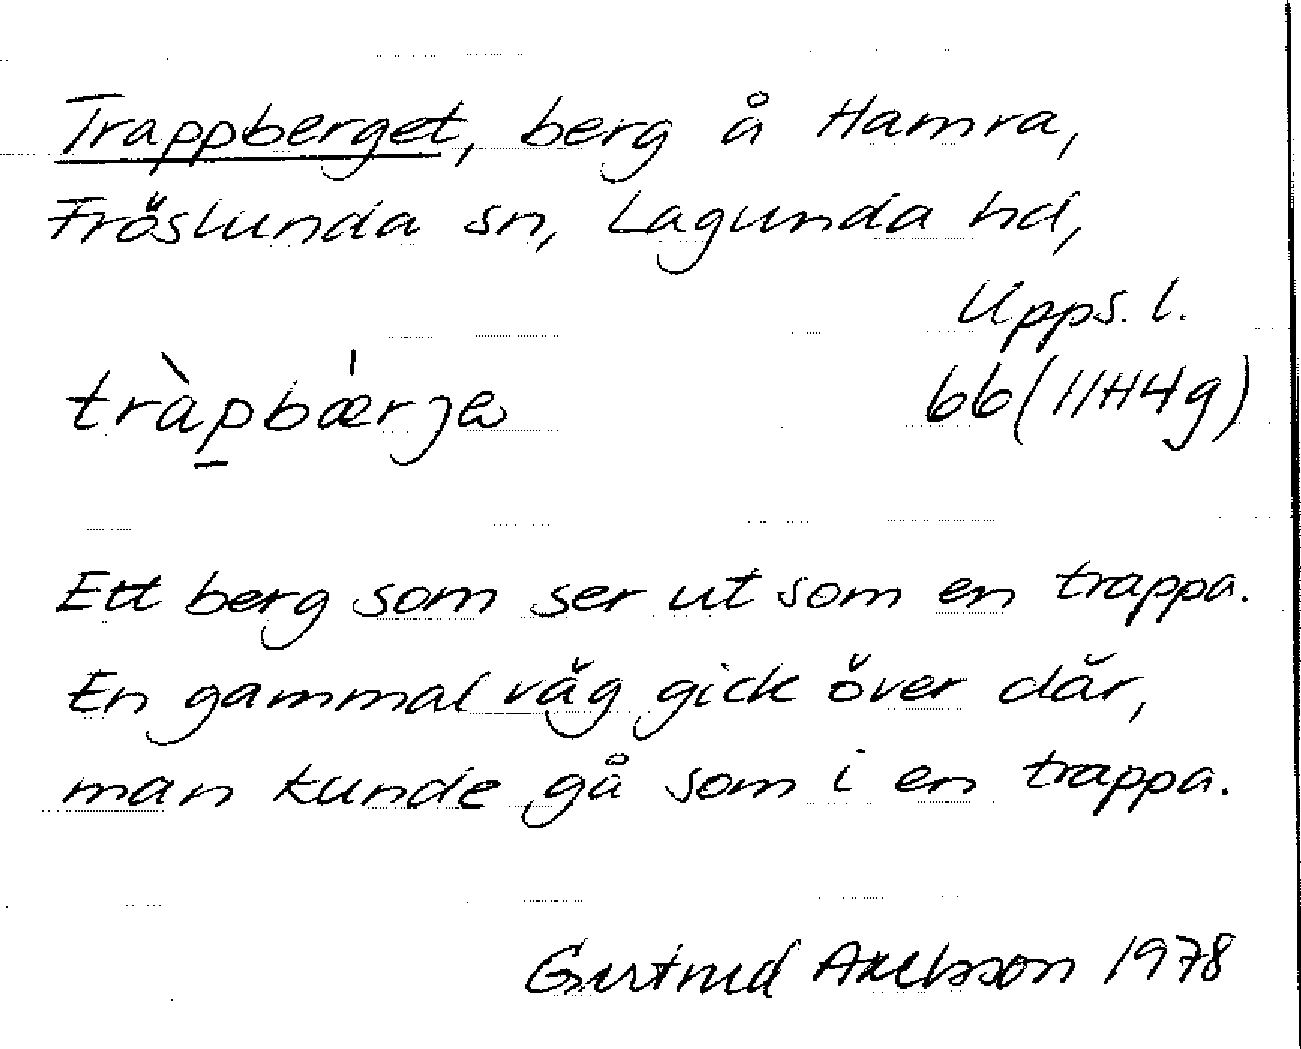 Trappberget, berg å Hamra,
Fröslunda sn, Lagunda hd,
Upps. l.
tràp̠bǽrja 66(11H4g)
Ett berg som ser ut som en trappa.
En gammal väg gick över där,
man kunde gå som i en trappa.
Gertrud Axelsson 1978